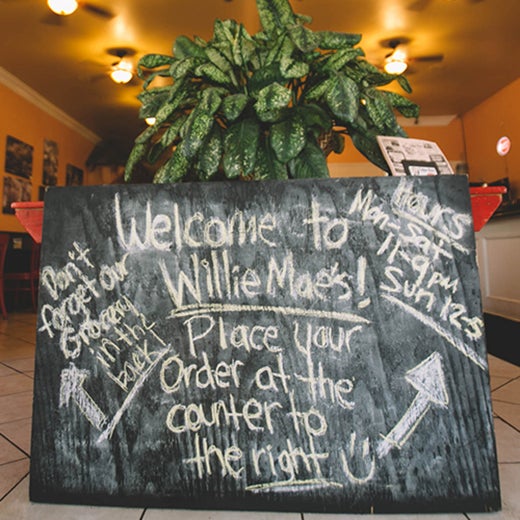 Welcome to
Willie Mae's!
Place your
Order at the
counter to
the right
Don't
forget our
Grocery
in the
back!
Hours
Mon-Sat
11-9pm
Sun 12-5